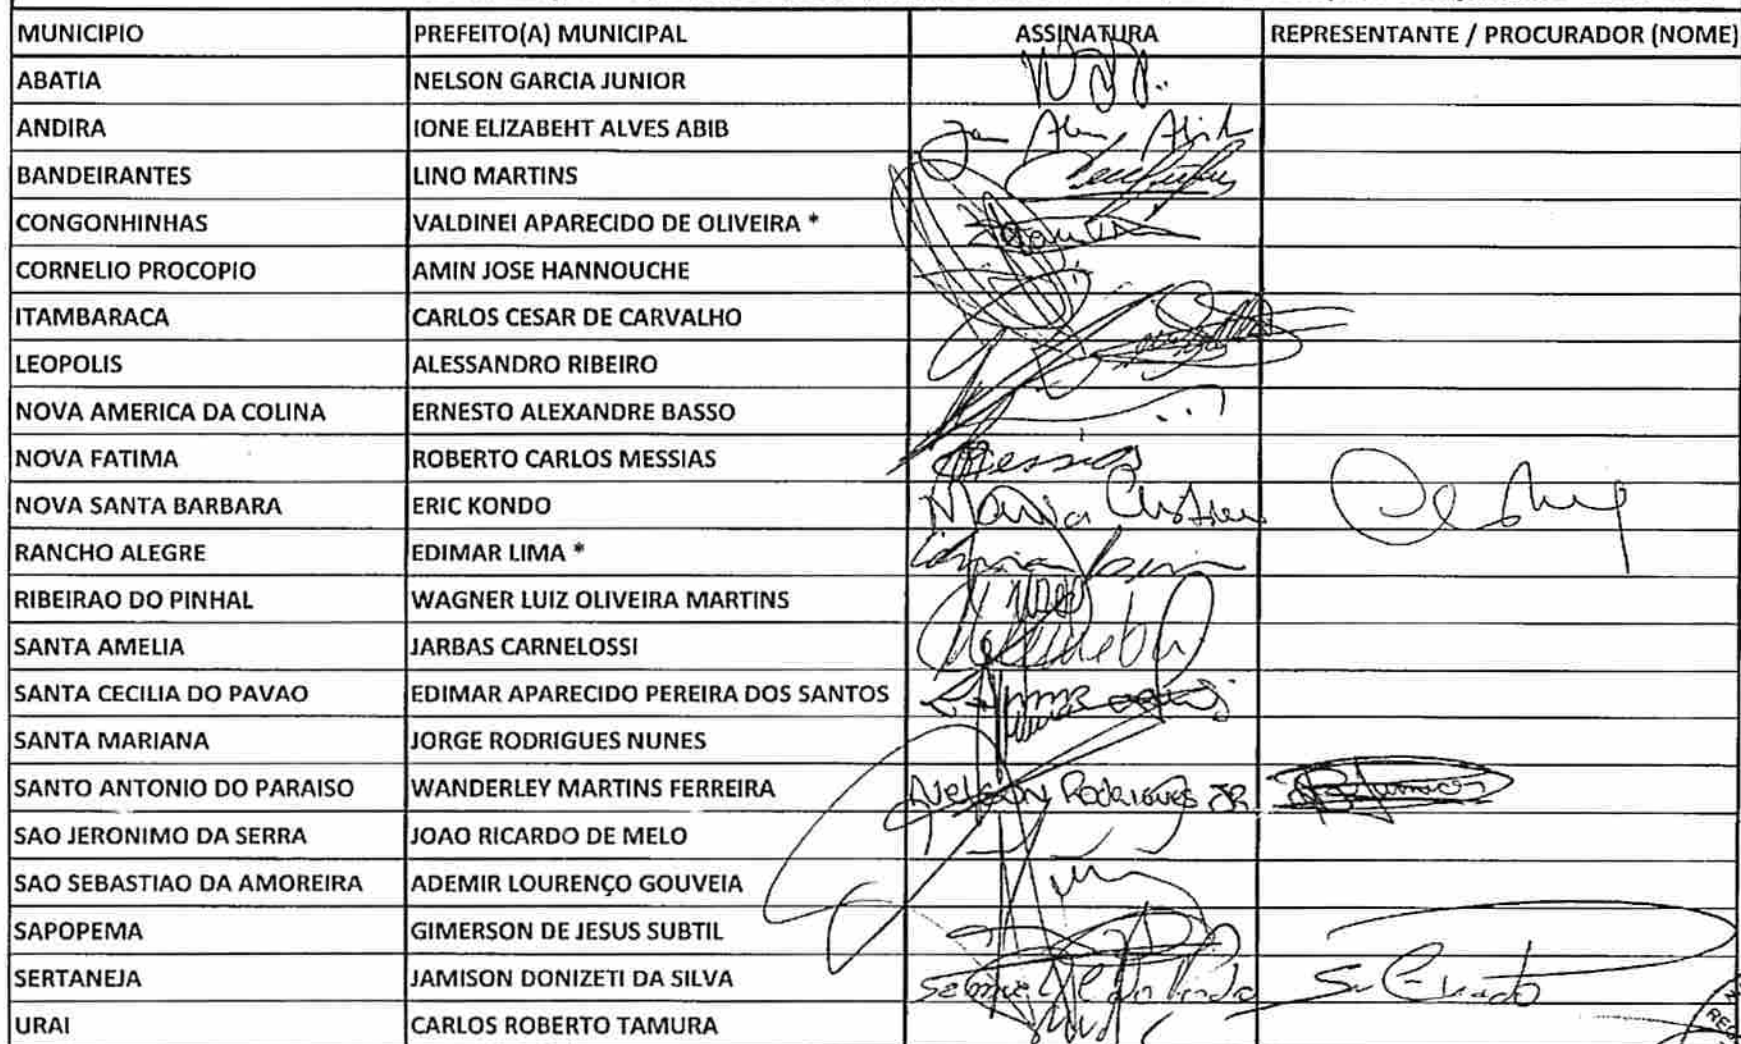 MUNICIPIO PREFEITO(A) MUNICIPAL ASSINATURA REPRESENTANTE / PROCURADOR (NOME)
ABATIA NELSON GARCIA JUNIOR
ANDIRA IONE ELIZABEHT ALVES ABIB
BANDEIRANTES LINO MARTINS
CONGONHINHAS VALDINEI APARECIDO DE OLIVEIRA *
CORNELIO PROCOPIO AMIN JOSE HANNOUCHE
ITAMBARACA CARLOS CESAR DE CARVALHO
LEOPOLIS ALESSANDRO RIBEIRO
NOVA AMERICA DA COLINA ERNESTO ALEXANDRE BASSO
NOVA FATIMA ROBERTO CARLOS MESSIAS
NOVA SANTA BARBARA ERIC KONDO Maria
RANCHO ALEGRE EDIMAR LIMA *
RIBEIRAO DO PINHAL WAGNER LUIZ OLIVEIRA MARTINS
SANTA AMELIA JARBAS CARNELOSSI
SANTA CECILIA DO PAVAO EDIMAR APARECIDO PEREIRA DOS SANTOS
SANTA MARIANA JORGE RODRIGUES NUNES
SANTO ANTONIO DO PARAISO WANDERLEY MARTINS FERREIRA Nelson Rodrigues JR
SAO JERONIMO DA SERRA JOAO RICARDO DE MELO
SAO SEBASTIAO DA AMOREIRA ADEMIR LOURENÇO GOUVEIA
SAPOPEMA GIMERSON DE JESUS SUBTIL
SERTANEJA JAMISON DONIZETI DA SILVA
URAI CARLOS ROBERTO TAMURA